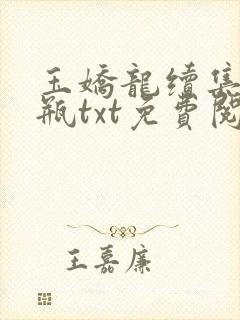 玉嬌龍續集
瓶txt免費閱
王嘉廉